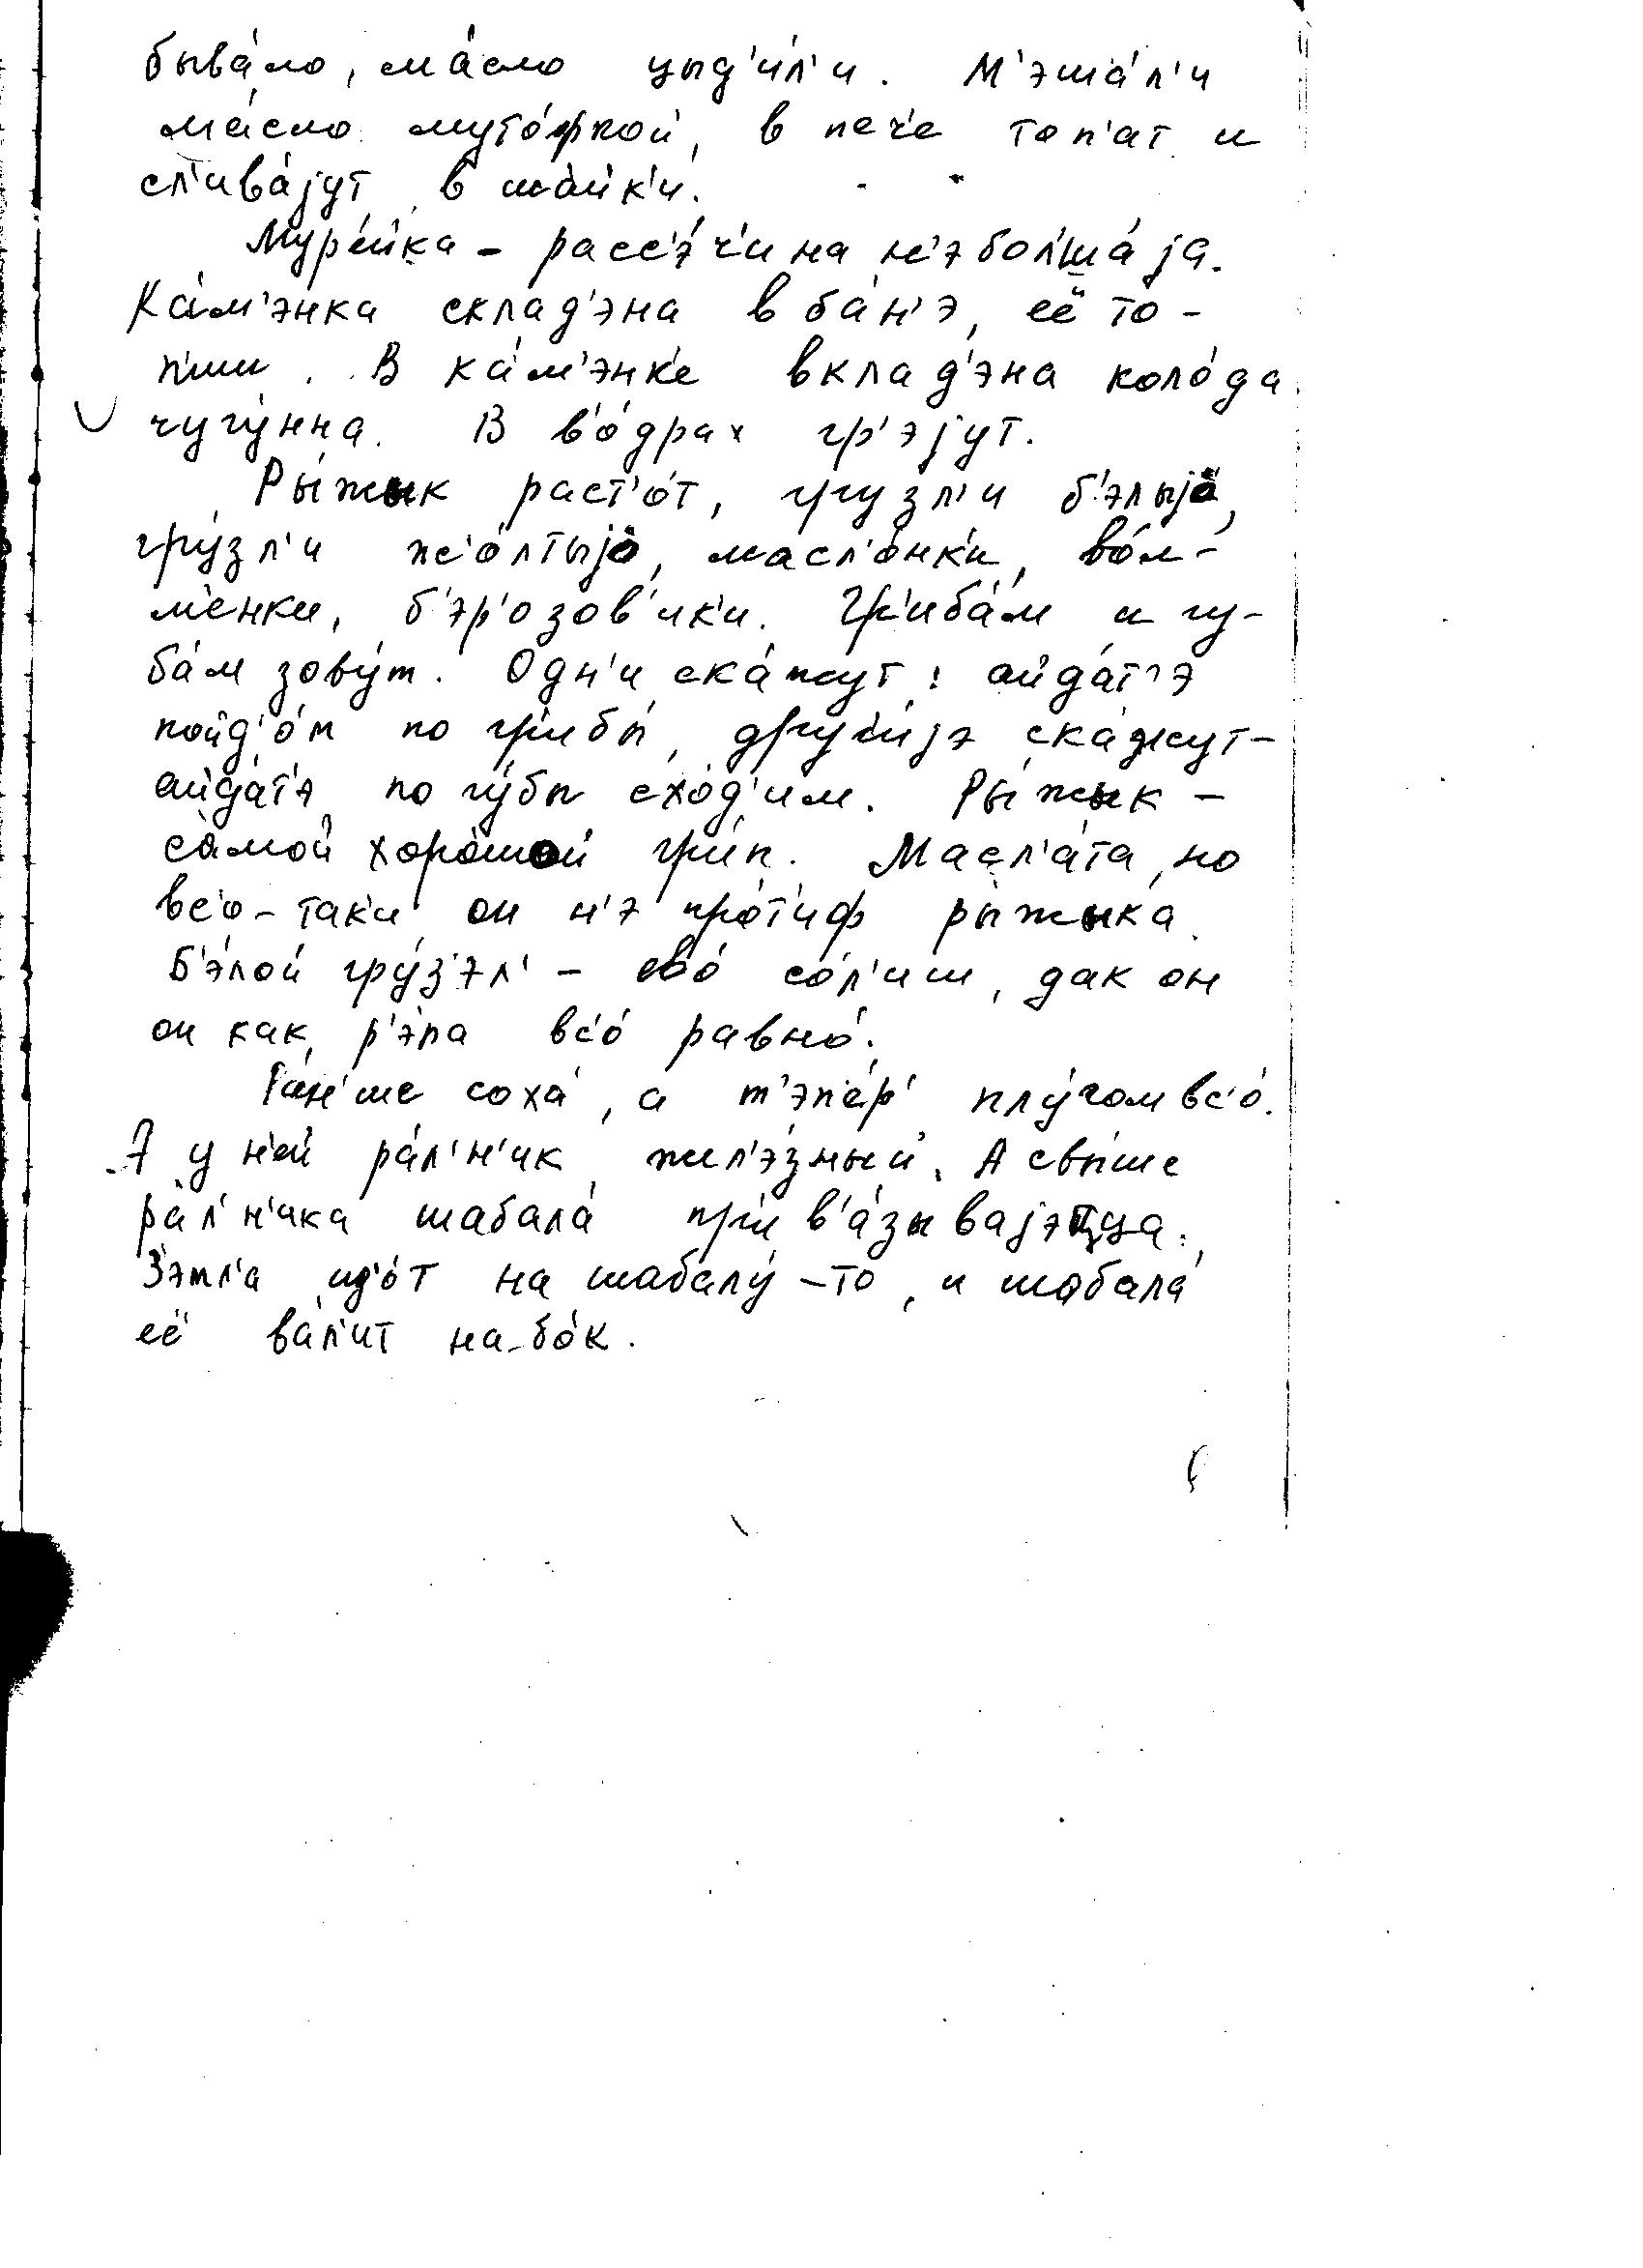 быва́ло, ма́сло цыд'и́л'и. М'эша́л'и
ма́сло муто́фкой, в пече́ топ'ат и
сл'ива́jут в ша́йк'и.
Муре́йка – расс'э́ч'ина н'эбол'ша́jа.
Ка́м'энка склад'эна в ба́н'э, её то-
п'им. В ка́м'энк'е вклад'эна коло́да
чугу́нна. В в'о́драх гр'э́jут.
Ры́жык раст'о́т, грузл'и б'элыjо,
гру́зл'и ж'о́лтыjо, масл'о́нк'и, во́л-
м'енки, б'эр'о́зов'ик'и. Гр'иба́м и гу-
ба́м зову́т. Одн'и ска́жут: айда́т'э
пойд'о́м по гр'ибы́, друг'и́jэ ска́жут –
айда́т'э по гу́бы схо́д'им. Ры́жык –
са́мой хоро́шой гр'ип. Масл'а́та, но
вс'о-так'и он н'э про́т'иф ры́жыка.
Б'э́лой гру́з'эл' – ево́ со́л'иш, дак он
он как р'э́па вс'о́ равно́.
Ра́н'ше соха́, а т'эпе́р' плу́гом вс'о́.
А у н'ей ра́л'н'ик жел'э́зный. А свы́ше
ра́л'н'ика шабала́ пр'ив'а́зываjэцца.
З'эмл'а ид'о́т на шабалу́-то, и шабала́
её ва́л'ит на-бо́к.